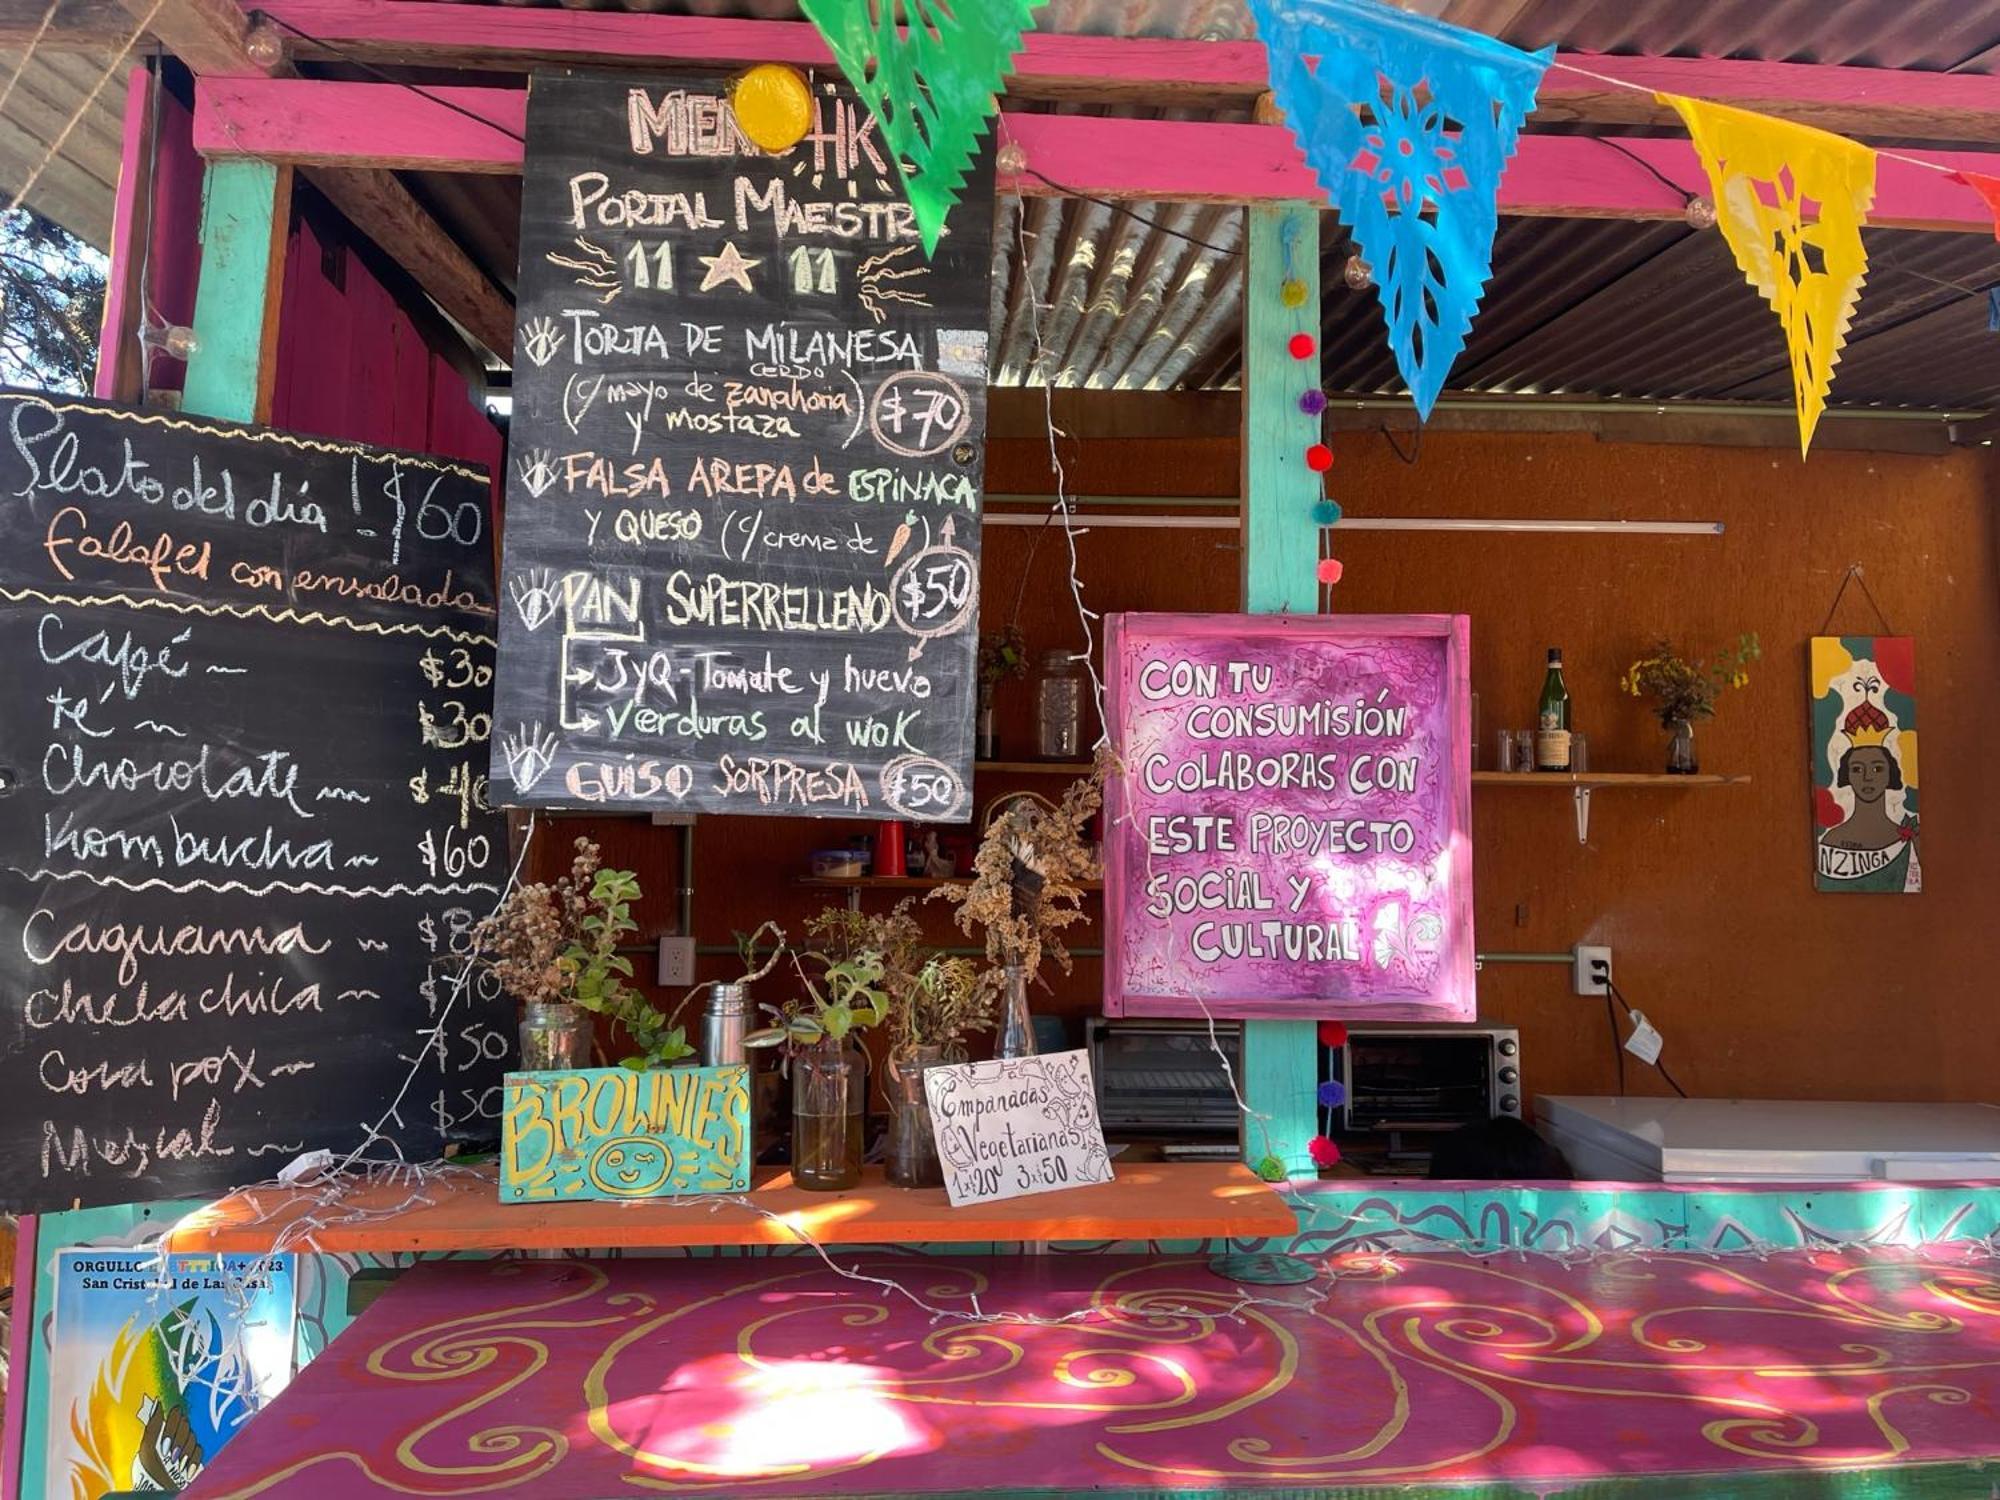 Plato del día! $60
falafel con ensalada
Café ~ $30
té ~ $30
Chocolate ~ $40
Kombucha ~ $60
Caguama ~ $8
chela chica ~ $40
pox ~ $50
Mezcal ~ $50
MEN HK
PORTAL MAESTR
11 ★ 11
TORTA DE MILANESA
CERDO
(c/ mayo de zanahoria
y mostaza) $70
FALSA AREPA de ESPINACA
Y QUESO (c/ crema de )
$50
PAN SUPERRELLENO
→ JyQ - Tomate y huevo
→ Verduras al wok
GUISO SORPRESA $50
CON TU
CONSUMISIÓN
COLABORAS CON
ESTE PROYECTO
SOCIAL Y
CULTURAL
NZINGA
BROWNIES
Empanadas
Vegetarianas
1x$20 3x$50
ORGULLO 2023
San Cristobal de Las